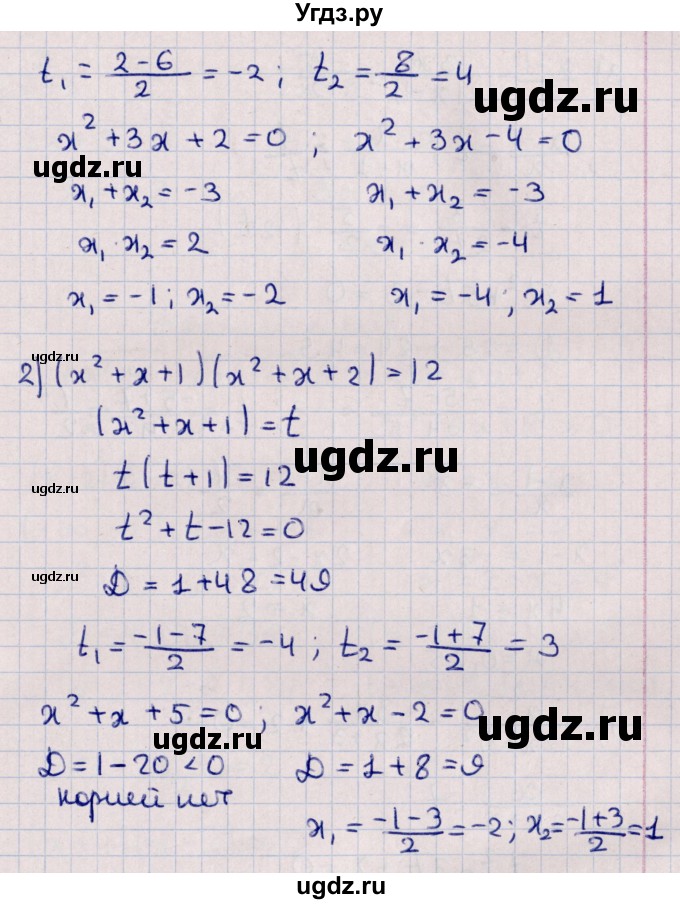 Угдз.ру
t₁ = (2-6)/2 = -2; t₂ = 8/2 = 4
ugdz.ru
x² + 3x + 2 = 0; x² + 3x - 4 = 0
ugdz.ru
x₁ + x₂ = -3 x₁ + x₂ = -3
x₁ · x₂ = 2 x₁ · x₂ = -4
x₁ = -1; x₂ = -2 x₁ = -4; x₂ = 1
ugdz.ru
2) (x² + x + 1)(x² + x + 2) = 12
(x² + x + 1) = t
ugdz.ru
t(t + 1) = 12
ugdz.ru
t² + t - 12 = 0
ugdz.ru
D = 1 + 48 = 49
t₁ = (-1-7)/2 = -4; t₂ = (-1+7)/2 = 3
x² + x + 5 = 0; x² + x - 2 = 0
ugdz.ru
ugdz.ru
D = 1 - 20 < 0 D = 1 + 8 = 9
корней нет
x₁ = (-1-3)/2 = -2; x₂ = (-1+3)/2 = 1
ugdz.ru